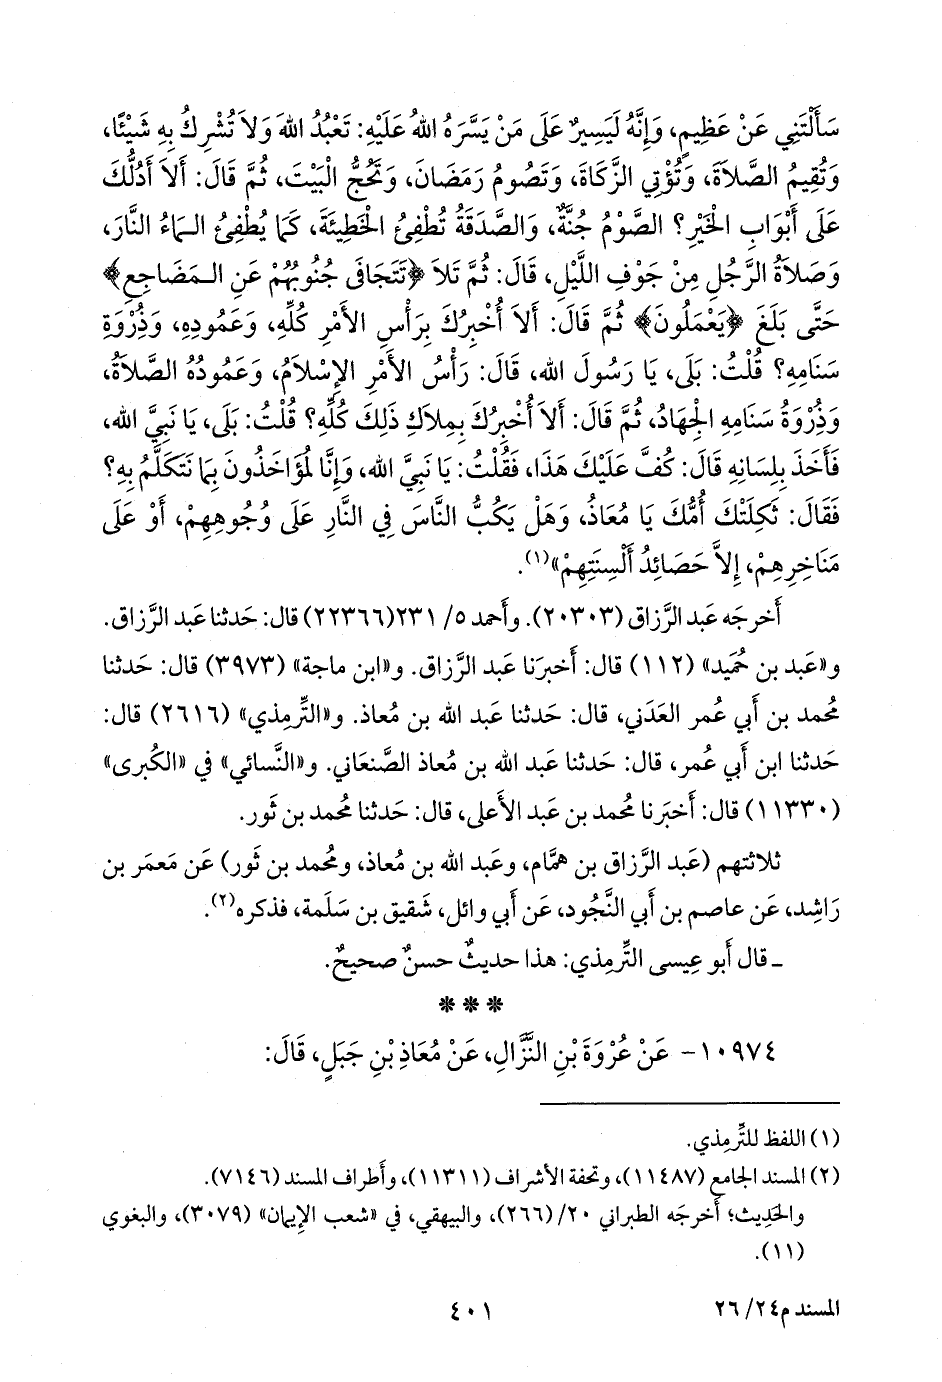 سَأَلْتَنِي عَنْ عَظِيمٍ، وَإِنَّهُ لَيَسِيرٌ عَلَى مَنْ يَسَّرَهُ اللهُ عَلَيْهِ: تَعْبُدُ اللهَ وَلاَ تُشْرِكُ بِهِ شَيْئًا،
وَتُقِيمُ الصَّلاَةَ، وَتُؤْتِي الزَّكَاةَ، وَتَصُومُ رَمَضَانَ، وَتَحُجُّ الْبَيْتَ، ثُمَّ قَالَ: أَلاَ أَدُلُّكَ
عَلَى أَبْوَابِ الْخَيْرِ؟ الصَّوْمُ جُنَّةٌ، وَالصَّدَقَةُ تُطْفِئُ الْخَطِيئَةَ، كَمَا يُطْفِئُ الـمَاءُ النَّارَ،
وَصَلاَةُ الرَّجُلِ مِنْ جَوْفِ اللَّيْلِ، قَالَ: ثُمَّ تَلاَ ﴿تَتَجَافَى جُنُوبُهُمْ عَنِ الـمَضَاجِعِ﴾
حَتَّى بَلَغَ ﴿يَعْمَلُونَ﴾ ثُمَّ قَالَ: أَلاَ أُخْبِرُكَ بِرَأْسِ الأَمْرِ كُلِّهِ، وَعَمُودِهِ، وَذُرْوَةِ
سَنَامِهِ؟ قُلْتُ: بَلَى، يَا رَسُولَ الله، قَالَ: رَأْسُ الأَمْرِ الإِسْلاَمُ، وَعَمُودُهُ الصَّلاَةُ،
وَذُرْوَةُ سَنَامِهِ الْجِهَادُ، ثُمَّ قَالَ: أَلاَ أُخْبِرُكَ بِمِلاَكِ ذَلِكَ كُلِّهِ؟ قُلْتُ: بَلَى، يَا نَبِيَّ الله،
فَأَخَذَ بِلِسَانِهِ قَالَ: كُفَّ عَلَيْكَ هَذَا، فَقُلْتُ: يَا نَبِيَّ الله، وَإِنَّا لَمُؤَاخَذُونَ بِمَا نَتَكَلَّمُ بِهِ؟
فَقَالَ: ثَكِلَتْكَ أُمُّكَ يَا مُعَاذُ، وَهَلْ يَكُبُّ النَّاسَ فِي النَّارِ عَلَى وُجُوهِهِمْ، أَوْ عَلَى
مَنَاخِرِهِمْ، إِلاَّ حَصَائِدُ أَلْسِنَتِهِمْ»(١).
أَخرجَه عَبد الرَّزاق (٢٠٣٠٣). وأَحمد ٥/ ٢٣١(٢٢٣٦٦) قال: حَدثنا عَبد الرَّزاق.
و«عَبد بن حُمَيد» (١١٢) قال: أَخبرَنا عَبد الرَّزاق. و«ابن ماجة» (٣٩٧٣) قال: حَدثنا
مُحمد بن أَبي عُمر العَدَني، قال: حَدثنا عَبد الله بن مُعاذ. و«التِّرمِذي» (٢٦١٦) قال:
حَدثنا ابن أَبي عُمر، قال: حَدثنا عَبد الله بن مُعاذ الصَّنعَاني. و«النَّسائي» في «الكُبرى»
(١١٣٣٠) قال: أَخبَرنا مُحمد بن عَبد الأَعلى، قال: حَدثنا مُحمد بن ثَور.
ثلاثتهم (عَبد الرَّزاق بن هَمَّام، وعَبد الله بن مُعاذ، ومُحمد بن ثَور) عَن مَعمَر بن
رَاشِد، عَن عاصم بن أَبي النَّجُود، عَن أَبي وائل، شَقيق بن سَلَمة، فذكره(٢).
ـ قال أَبو عِيسى التِّرمِذي: هذا حديثٌ حسنٌ صحيحٌ.
***
١٠٩٧٤- عَنْ عُرْوَةَ بْنِ النَّزَّالِ، عَنْ مُعَاذِ بْنِ جَبَلٍ، قَالَ:
(١) اللفظ للتِّرمِذي.
(٢) المسند الجامع (١١٤٨٧)، وتحفة الأشراف (١١٣١١)، وأَطراف المسند (٧١٤٦).
والحَدِيث؛ أَخرجَه الطبراني ٢٠/ (٢٦٦)، والبيهقي، في «شعب الإيمان» (٣٠٧٩)، والبغوي
(١١).
المسند م٢٤/ ٢٦
٤٠١